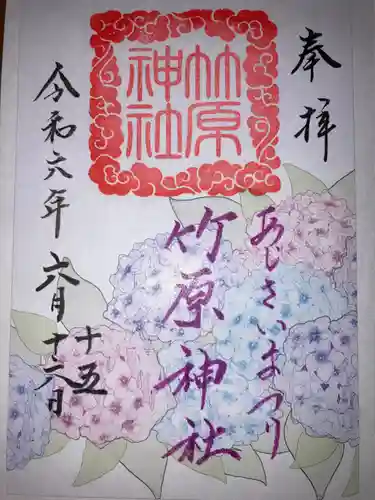 奉拝
竹原
神社
あじさいまつり
竹原神社
令和六年 六月 十五
十六日